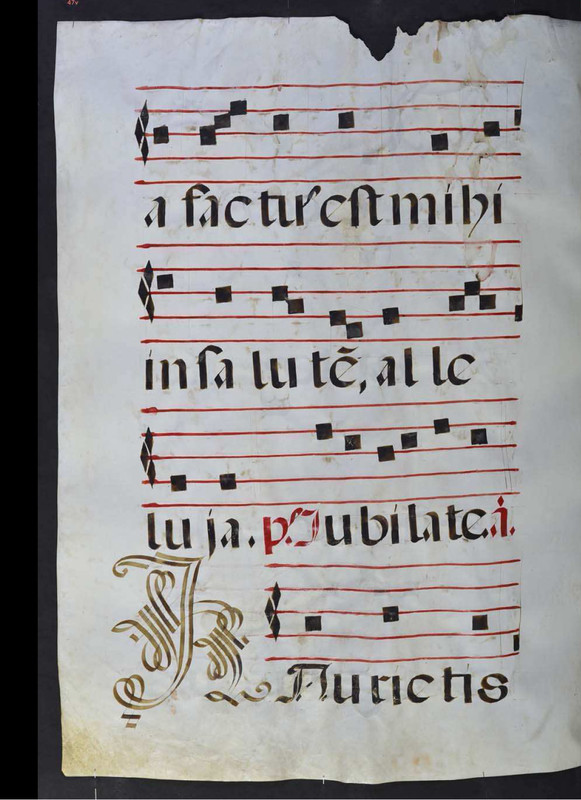 47v
a factus est mihi
in sa lu tē, al le
lu ja. ps. Jubilate. i.
IN Aurictis